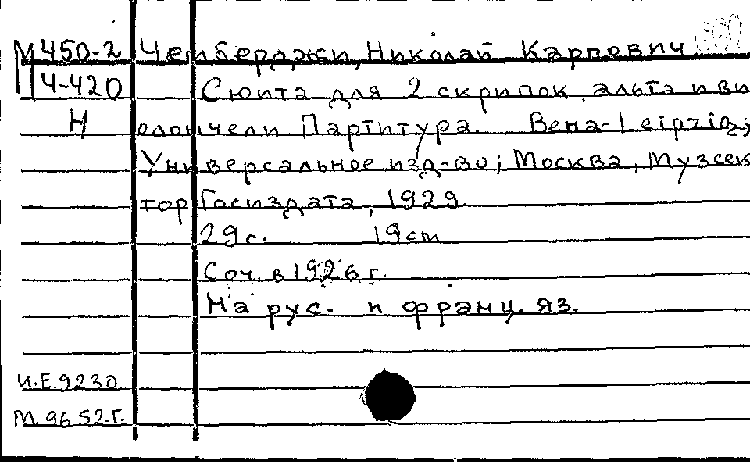 М 450-2 Чемберджи, Николай Карпович
Ч-420 Сюита для 2 скрипок альта и ви
Н олончели Партитура. Вена-Leipzig;
Универсальное изд-во; Москва, Музсек
тор Госиздата, 1929
29с. 19cm
Соч. в 1926 г.
На рус. и франц. яз.
И.Е 9230
М. 96 52-Г.